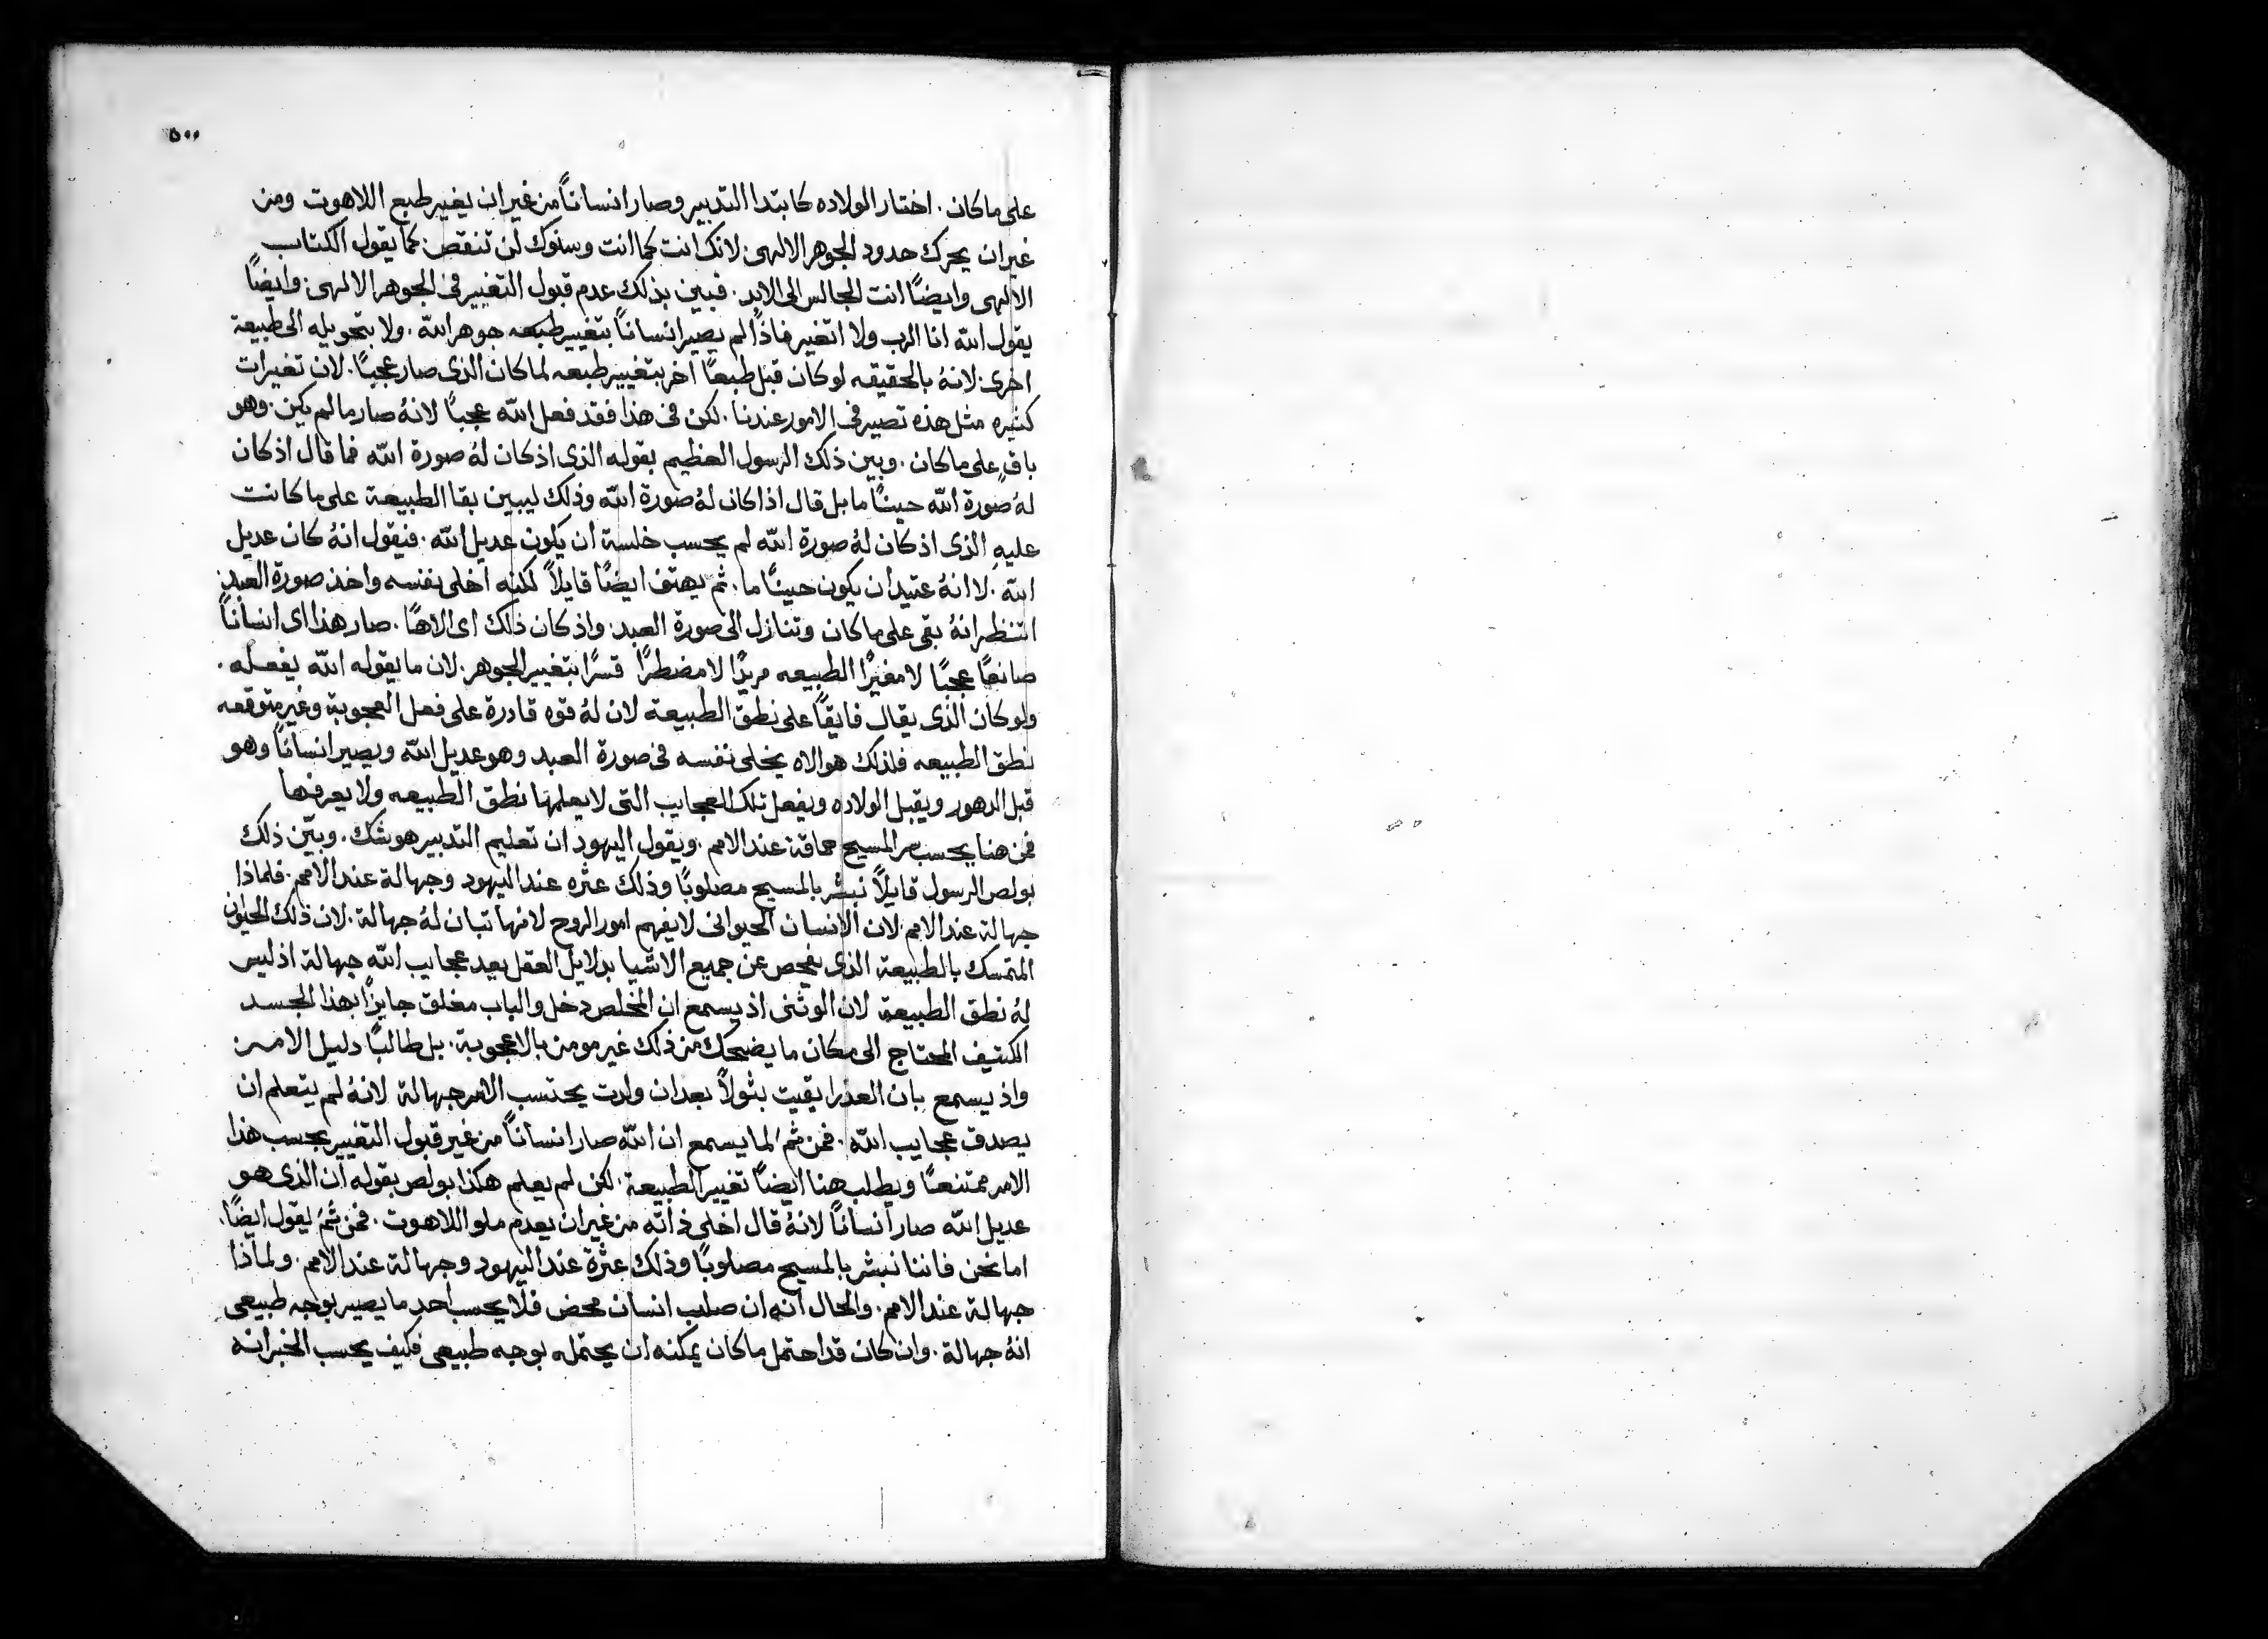 ٥٠٠
على ما كان. اختار الولاده كابتدا التدبير وصار انساناً من غير ان يغير طبع اللاهوت ومن
غير ان يحرك حدود الجوهر الالهى. لانك انت كما انت وسنوك لن تنقص. كما يقول الكتاب
الالهى وايضاً انت الجالس الى الابد. فبين بذلك عدم قبول التغيير فى الجوهر الالهى. وايضاً
يقول الله انا الرب ولا اتغير فاذاً لم يصير انساناً بتغيير طبعه جوهر الله. ولا بتحويله الى طبيعة
اخرى. لانهُ بالحقيقه لو كان قبل طبعاً اخر بتغيير طبعه لما كان الذى صار عجباً. لان تغيرات
كثيره مثل هذه تصير فى الامور عندنا. لكن فى هذا فقد فعل الله عجباً لانهُ صار ما لم يكن. وهو
باقٍ على ما كان. وبين ذلك الرسول العظيم بقوله الذى اذ كان لهُ صورة الله فما قال اذ كان
لهُ صورة الله حيناً ما بل قال اذا كان لهُ صورة الله وذلك ليبين بقا الطبيعة على ما كانت
عليهِ الذى اذ كان لهُ صورة الله لم يحسب خلسة ان يكون عديل الله. فيقول انهُ كان عديل
الله. لا انهُ عتيد ان يكون حيناً ما. ثم يهتف ايضاً قايلاً لكنه اخلى نفسه واخذ صورة العبد.
انتظر انهُ بقى على ما كان وتنازل الى صورة العبد. واذ كان ذلك اى الاهًا. صار هذا اى انساناً
صانعاً عجباً لا مغيراً الطبيعه مريداً لا مضطراً قسراً بتغيير الجوهر. لان ما يقوله الله يفعله.
ولو كان الذى يقال فايقاً على نطق الطبيعة لان لهُ قوه قادرة على فعل العجوبة وغير متوقعه
نطق الطبيعه فلذلك هو الاه يخلى نفسه فى صورة العبد وهو عديل الله ويصير انساناً وهو
قبل الدهور ويقبل الولاده ويفعل تلك العجايب التى لا يعلمها نطق الطبيعه ولا يعرفها
فمن هنا يحسب سر المسيح حماقة عند الامم. ويقول اليهود ان تعليم التدبير هو شك. وبيّن ذلك
بولص الرسول قايلاً نبشر بالمسيح مصلوباً وذلك عثره عند اليهود وجهالة عند الامم. فلماذا
جهالة عند الامم. لان الانسان الحيوانى لا يفهم امور الروح لانها تبان لهُ جهالة. لان ذلك الحيوان
المتمسك بالطبيعة الذى يفحص عن جميع الاشيا بدلايل العقل يعد عجايب الله جهالة اذ ليس
لهُ نطق الطبيعة لان الوثنى اذ يسمع ان المخلص دخل والباب مغلق جايزاً بهذا الجسد
الكثيف المحتاج الى مكان ما يضحك من ذلك غير مومن بالاعجوبة. بل طالباً دليل الامر
واذ يسمع بان العذرا بقيت بثولاً بعد ان ولدت يحتسب الامر جهالة لانهُ لم يتعلم ان
يصدق عجايب الله. فمن ثم لما يسمع ان الله صار انساناً من غير قبول التغيير يحسب هذا
الامر ممتنعاً ويطلب هنا ايضاً تغيير الطبيعة. لكن لم يعلم هكذا بولص بقوله ان الذى هو
عديل الله صار انساناً لانهُ قال اخلى ذاته من غير ان يعدم ملو اللاهوت. فمن ثم يقول ايضاً.
اما نحن فاننا نبشر بالمسيح مصلوباً وذلك عثرة عند اليهود وجهالة عند الامم. ولماذا
جهالة عند الامم. والحال انه ان صلب انسان محض فلا يحسب احد ما يصير بوجه طبيعى
انهُ جهالة. وان كان قد احتمل ما كان يمكنه ان يحتمله بوجه طبيعى فكيف يحسب الخبر انه